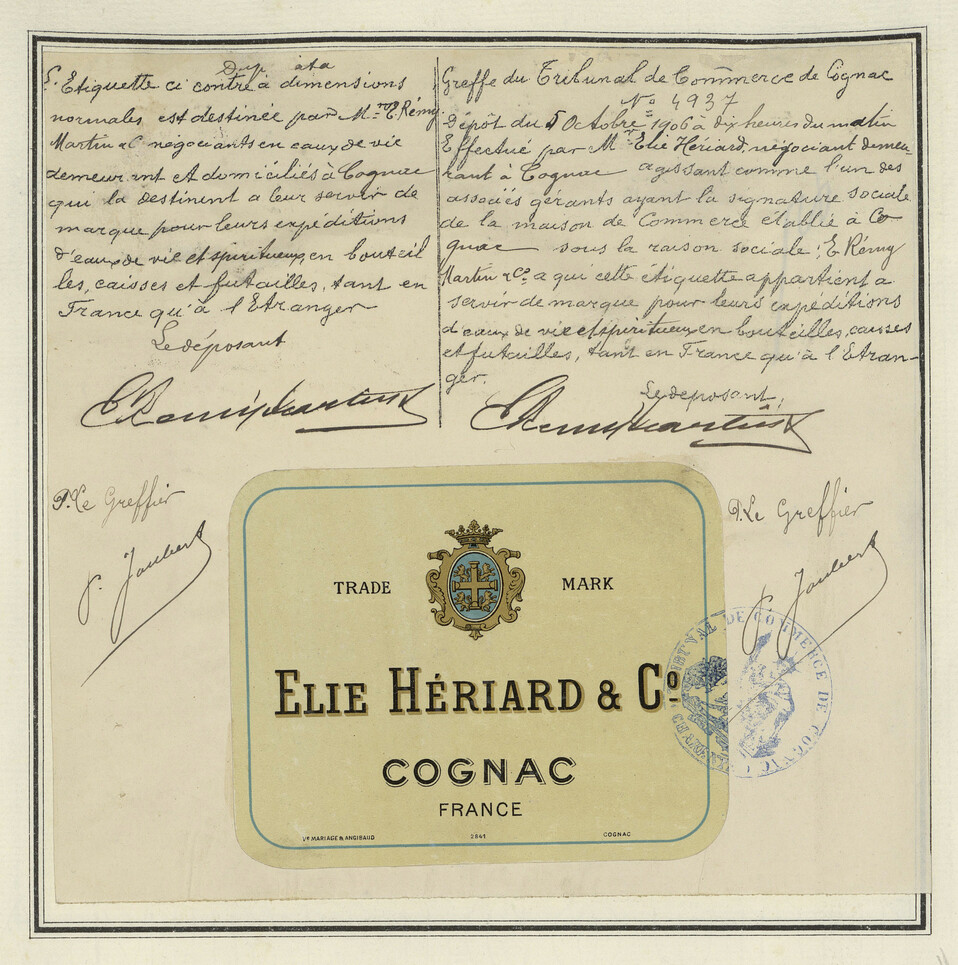 L'Etiquette ci contre à dimensions
normales est destinée par M.rs E. Rémy
Martin & C° négociants en eaux de vie
demeurant et domiciliés à Cognac
qui la destinent a leur servir de
marque pour leurs expéditions
d'eaux de vie et spiritueux, en bouteil
les, caisses et futailles, tant en
France qu'à l'Etranger
Le déposant
E Remy Martin & C°
P. Le Greffier
P. Joubert
Greffe du Tribunal de Commerce de Cognac
N° 4937
Dépôt du 5 Octobre 1906 à dix heures du matin
Effectué par M.r Elie Hériard, négociant demeu
rant à Cognac agissant comme l'un des
associés gérants ayant la signature sociale
de la maison de Commerce établie à Co
gnac sous la raison sociale: E Rémy
Martin & C° a qui cette étiquette appartient a
servir de marque pour leurs expéditions
d'eaux de vie et spiritueux en bouteilles, caisses
et futailles, tant en France qu'à l'Etran-
ger.
Le déposant,
E Remy Martin & C°
P. Le Greffier
P. Joubert
TRADE MARK
ELIE HÉRIARD & C°
COGNAC
FRANCE
Vve MARIAGE & ANGIBAUD 2841 COGNAC
TRIBUNAL DE COMMERCE DE COGNAC